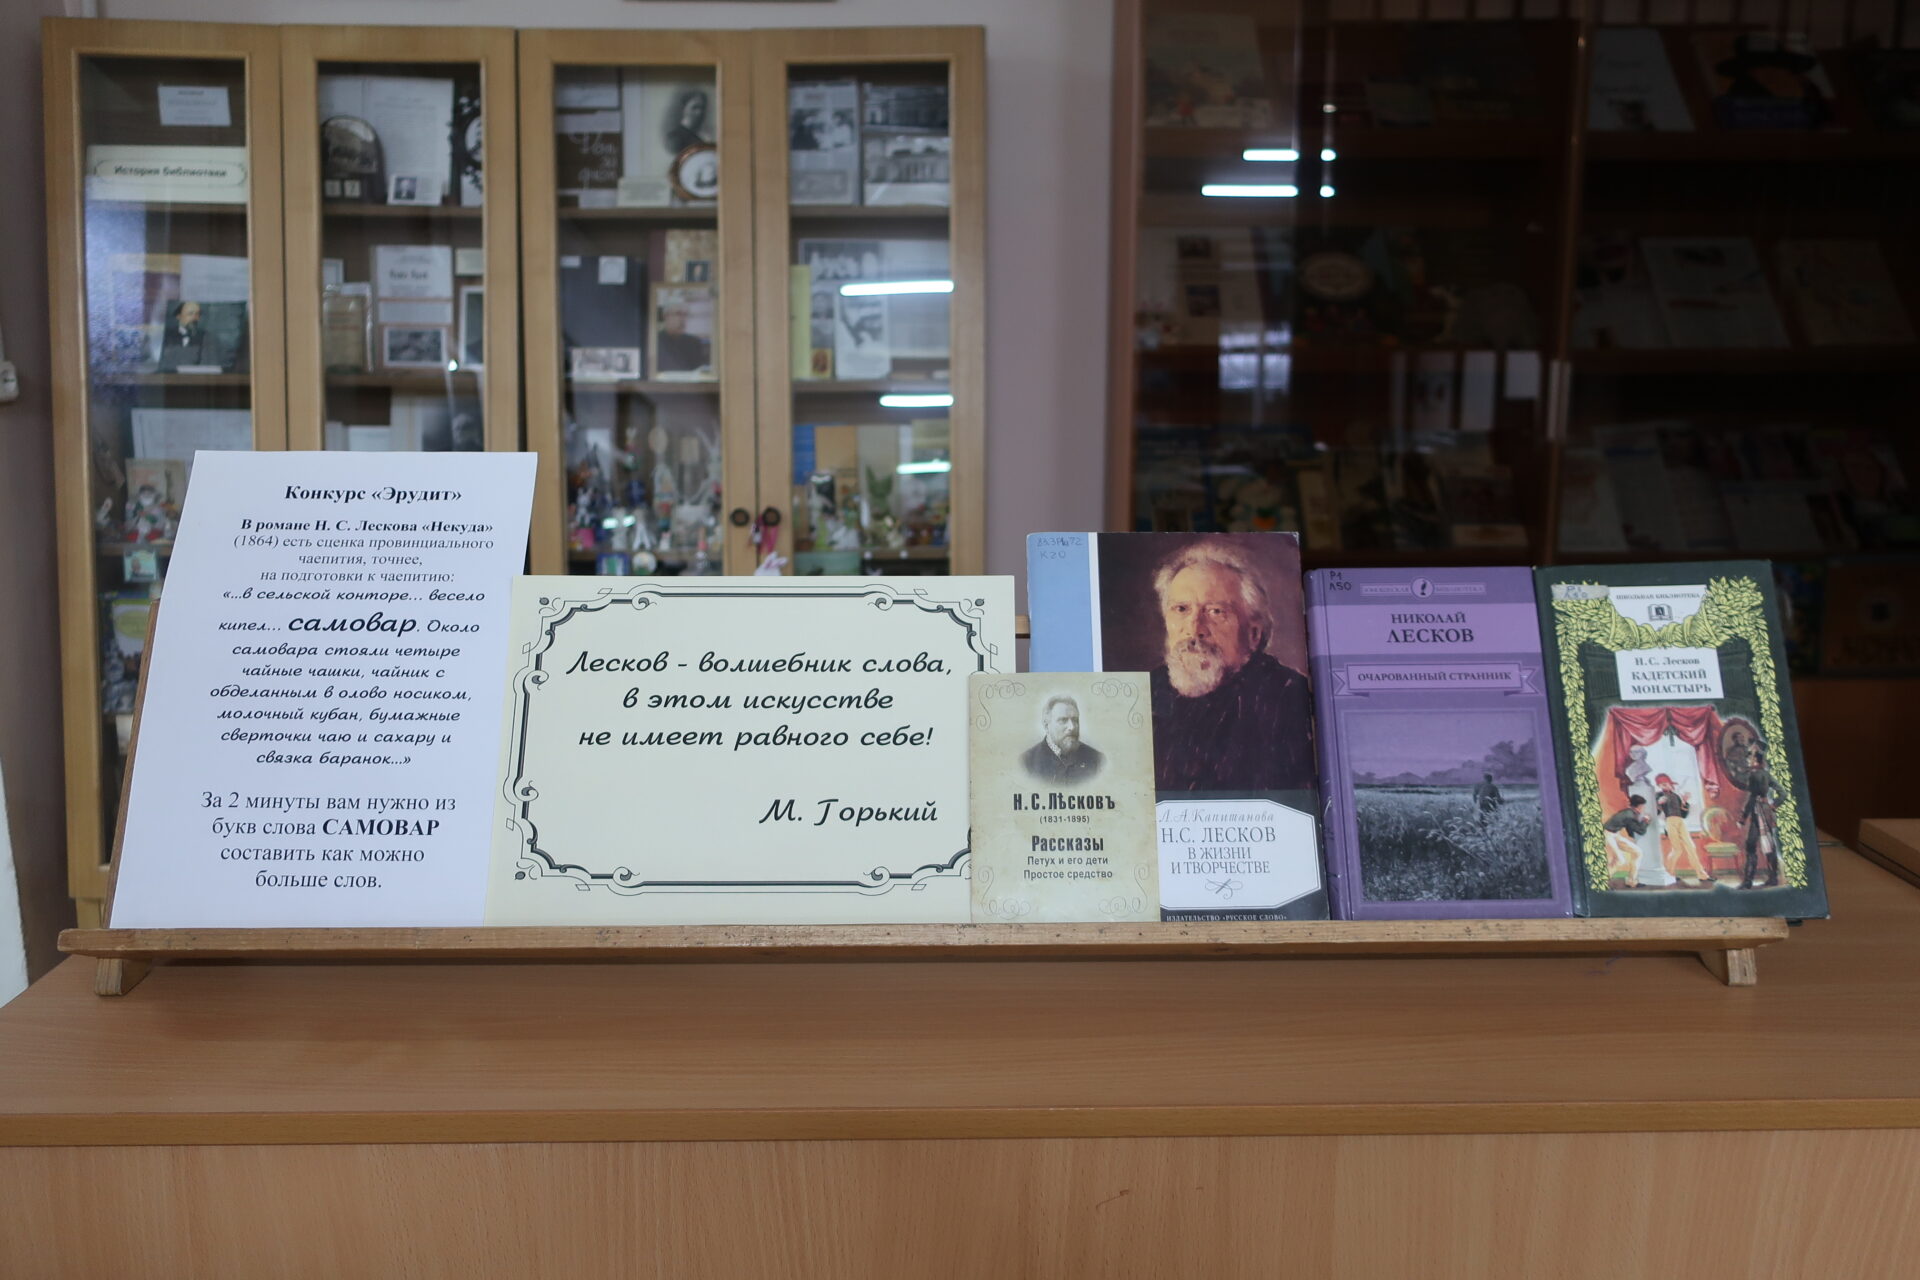 История библиотеки
Конкурс «Эрудит»
В романе Н. С. Лескова «Некуда»
(1864) есть сценка провинциального
чаепития, точнее,
на подготовки к чаепитию:
«...в сельской конторе... весело
кипел... самовар. Около
самовара стояли четыре
чайные чашки, чайник с
обделанным в олово носиком,
молочный кубан, бумажные
сверточки чаю и сахару и
связка баранок...»
За 2 минуты вам нужно из
букв слова САМОВАР
составить как можно
больше слов.
Лесков - волшебник слова,
в этом искусстве
не имеет равного себе!
М. Горький
Н.С.Лѣсковъ
(1831-1895)
Рассказы
Петух и его дети
Простое средство
83.3Р1я72
К20
Л.А.Капитанова
Н.С. ЛЕСКОВ
В ЖИЗНИ
И ТВОРЧЕСТВЕ
ИЗДАТЕЛЬСТВО «РУССКОЕ СЛОВО»
Р1
Л50
ЮНОШЕСКАЯ БИБЛИОТЕКА
НИКОЛАЙ
ЛЕСКОВ
ОЧАРОВАННЫЙ СТРАННИК
ШКОЛЬНАЯ БИБЛИОТЕКА
Н.С. Лесков
КАДЕТСКИЙ
МОНАСТЫРЬ